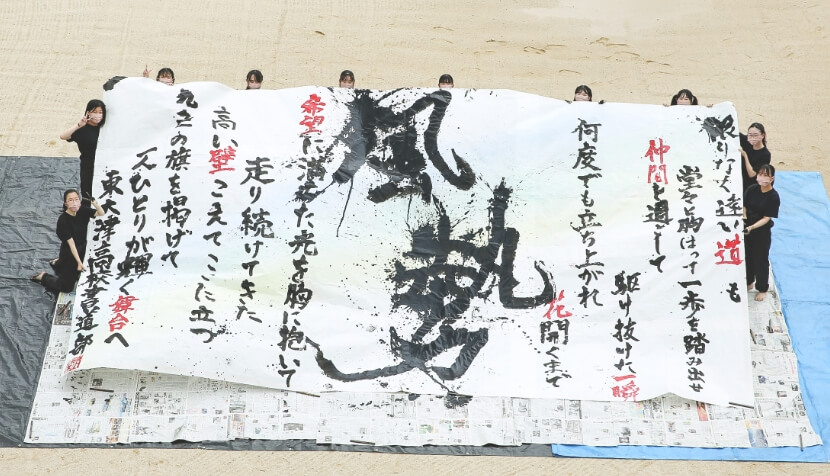 限りなく遠い道も
堂々と胸はって一歩を踏み出せ
仲間を通して
駆け抜けた一瞬
何度でも立ち上がれ
花開くまで
風勢
希望に満ちた光を胸に抱いて
走り続けてきた
高い壁こえてここに立つ
の旗を掲げて
一人ひとりが輝く舞台へ
東大津高校書道部